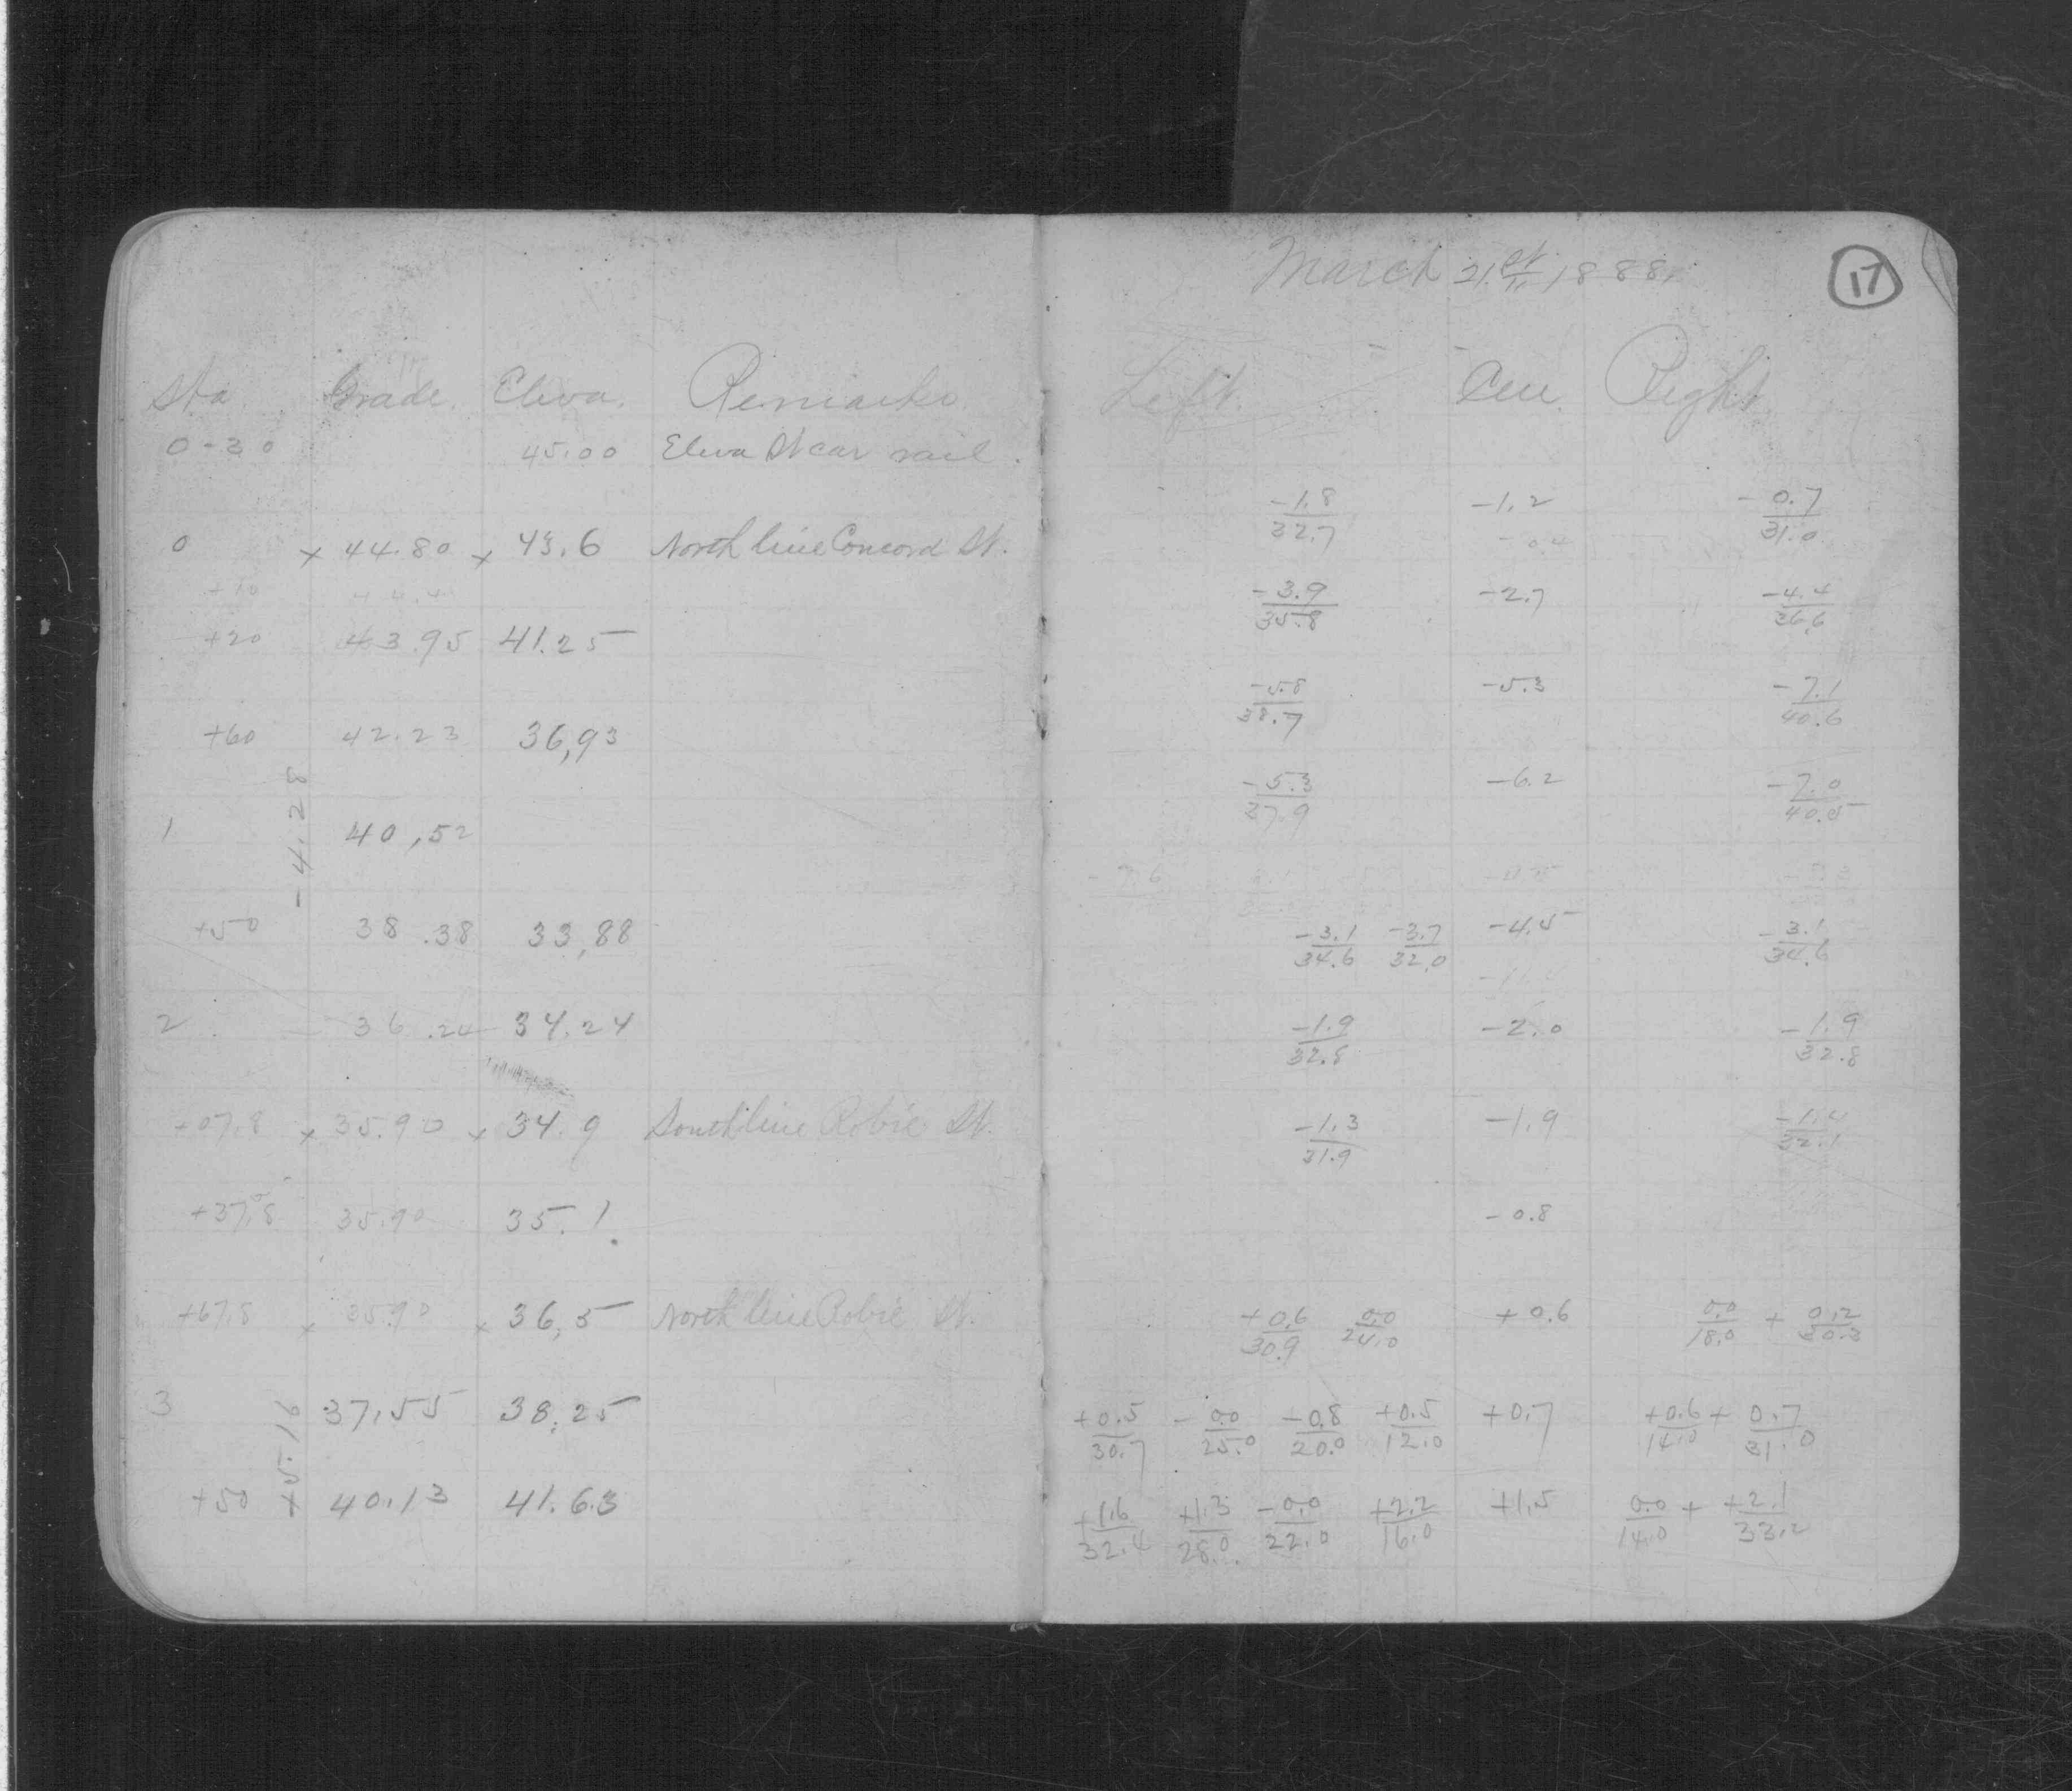 Sta. Grade. Eleva. Remarks.
0-30 45.00 Eleva St car rail.
0 × 44.80 × 43.6 North line Concord St.
+10 44.4
+20 43.95 41.25
+60 42.23 36,93
- 4.28
1 40,52
+50 38.38 33,88
2 36.24 34.24
+07.8 × 35.90 × 34.9 South line Robie St.
+37.8 35.90 35.1
+67.8 × 35.90 × 36,5 North line Robie St.
3 37,55 38.25
+5.16
+50 40.13 41.63
March 21st, 1888.
17
Left. Cen. Right
-1.8/32.7 -1.2 -0.7/31.0
-0.4
-3.9/35.8 -2.7 -4.4/36.6
-5.8/38.7 -5.3 -7.1/40.6
-5.3/37.9 -6.2 -7.0/40.5
-3.1/34.6 -3.7/32.0 -4.5 -3.1/34.6
-1.9/32.8 -2.0 -1.9/32.8
-1.3/31.9 -1.9 -1.4/32.1
-0.8
+0.6/30.9 0.0/24.0 +0.6 0.0/18.0 + 0.2/30.3
+0.5/30.7 - 0.0/25.0 -0.8/20.0 +0.5/12.0 +0.7 +0.6/14.0 + 0.7/31.0
+1.6/32.4 +1.3/28.0 -0.0/22.0 +2.2/16.0 +1.5 0.0/14.0 + +2.1/33.2